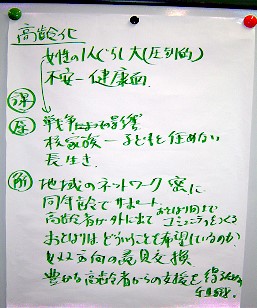 高齢化
女性の1人ぐらし大(圧倒的)
不安－健康面
課
戦争によって影響
核家族－子どもと住めない
長生き
地域のネットワーク 密に
同年齢でサポート おとなり同士で
高齢者が外に出て コミュニティをつくる
おとなりは どういうことを希望しているのか
双方向の意見交換
豊かな高齢者からの支援を